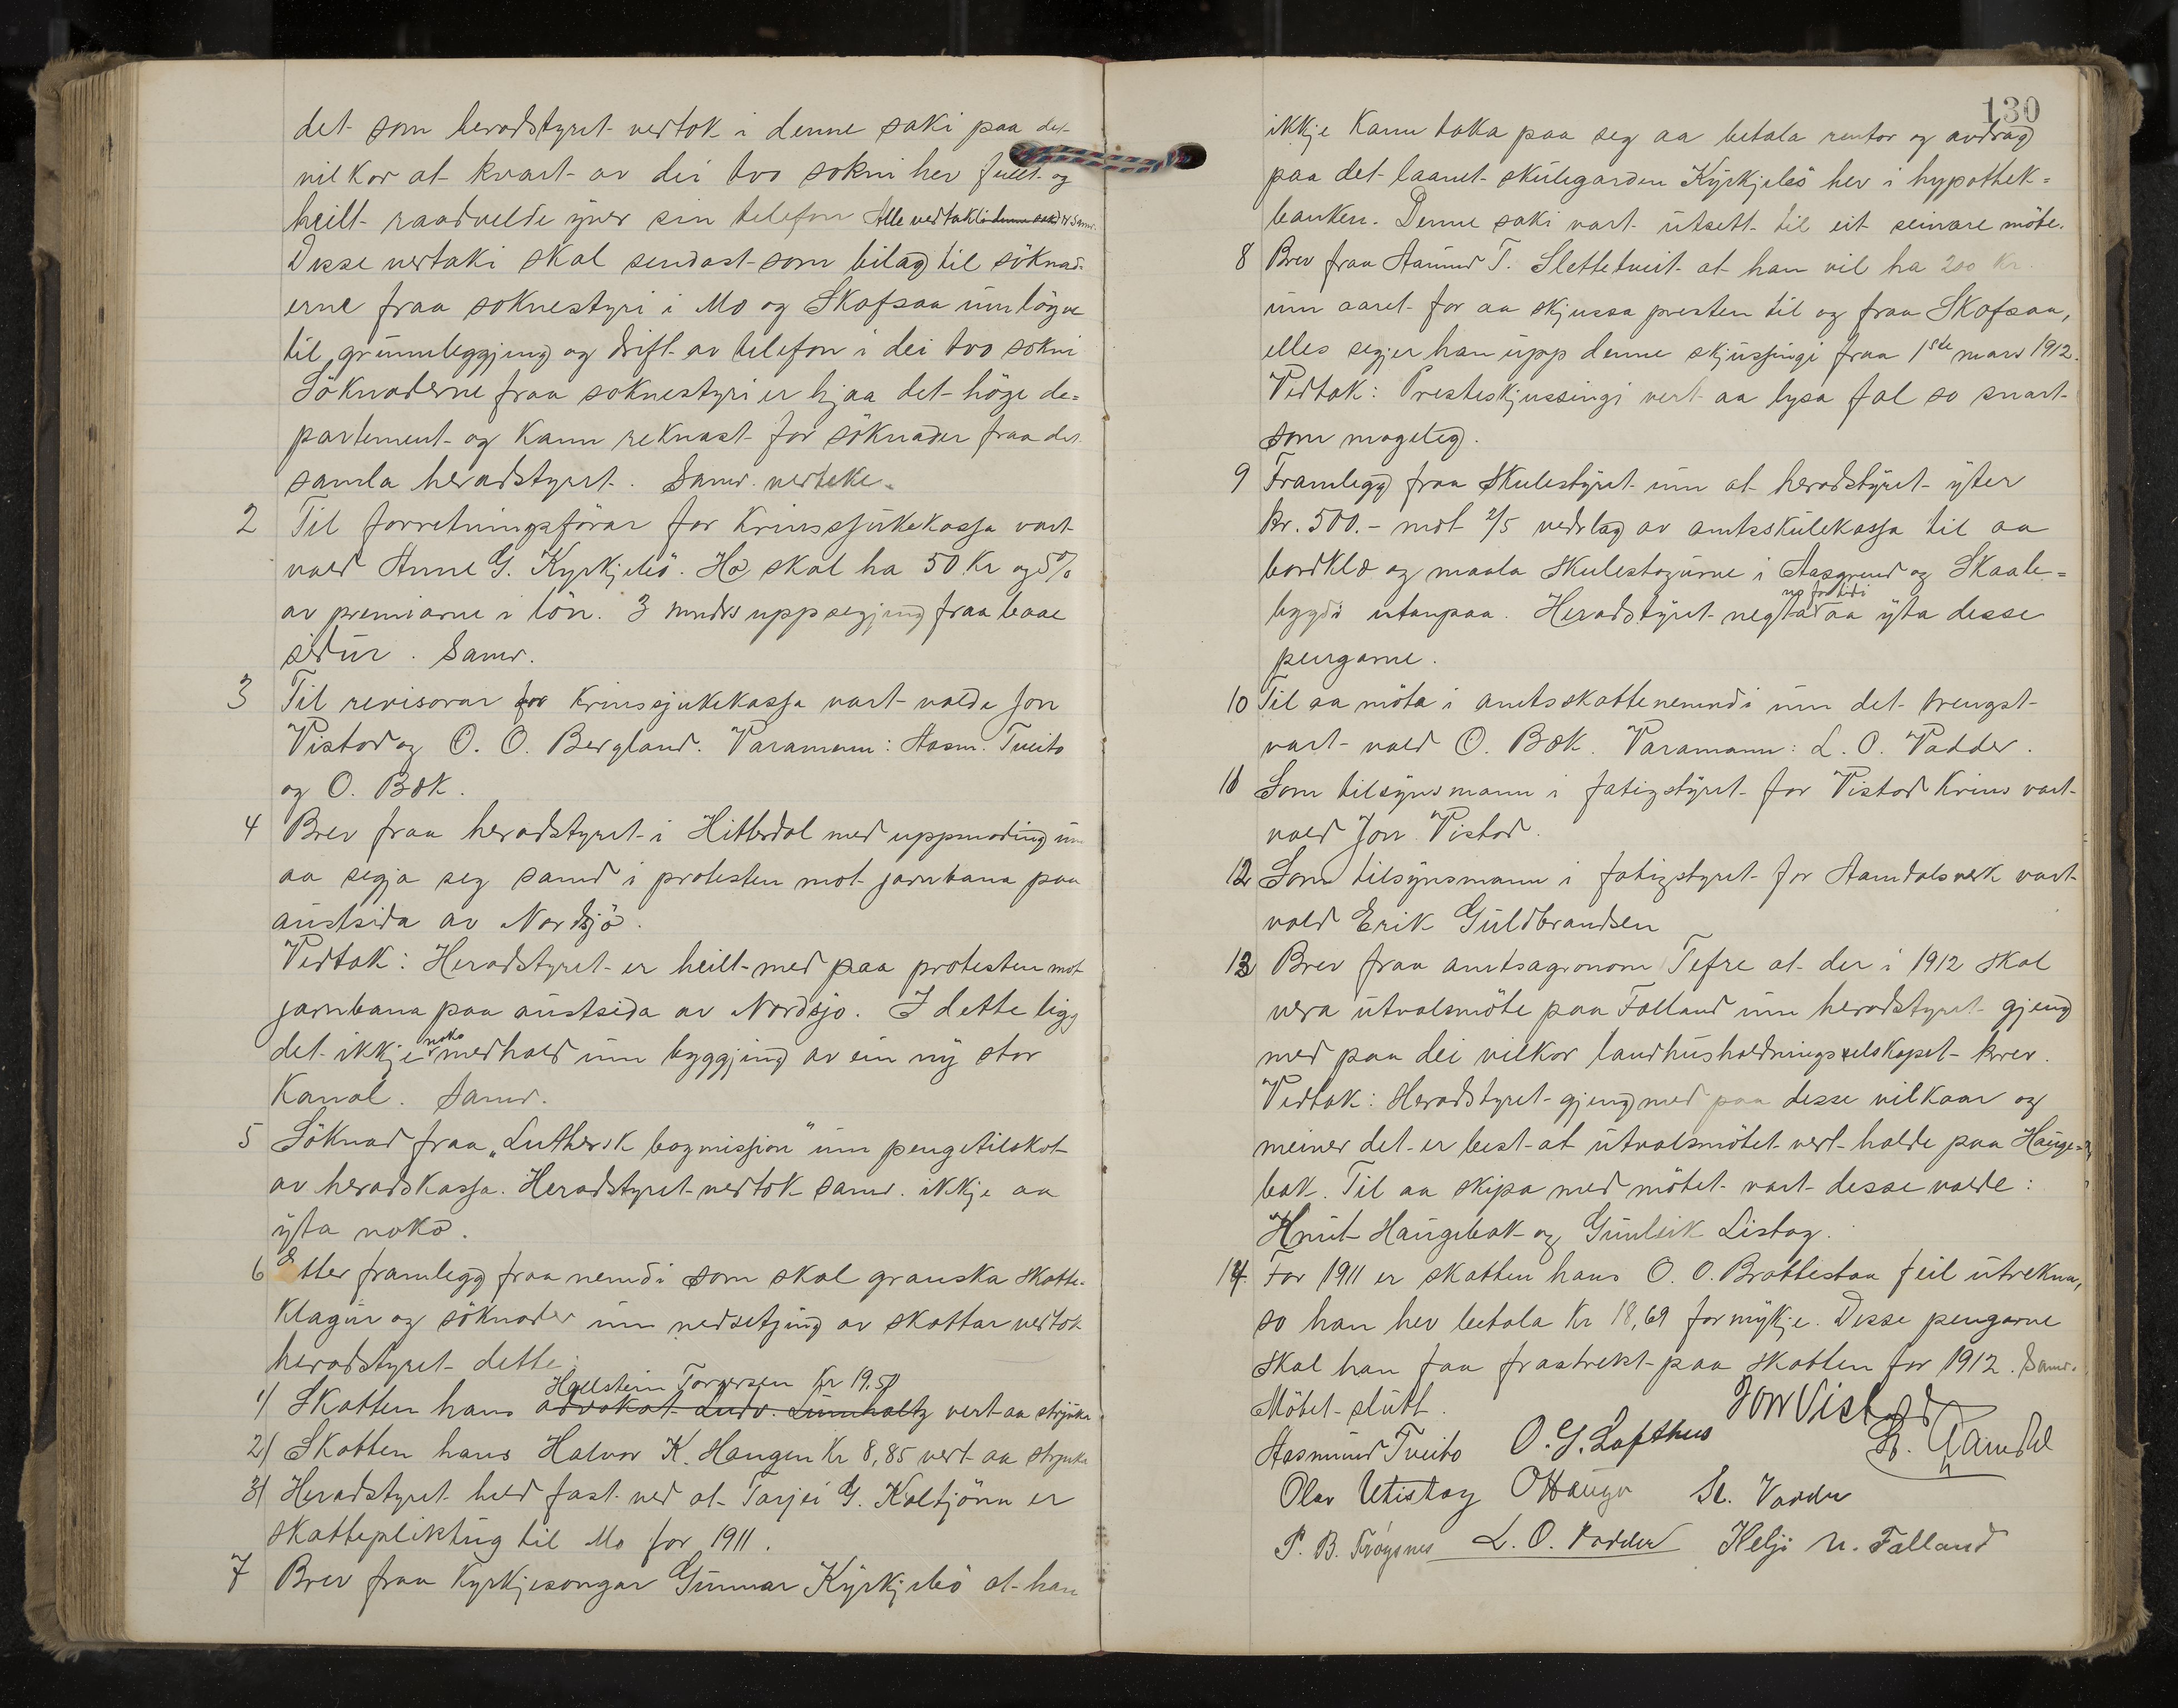 det som heradstyret vertok i denne saki paa det
vilkor at kvart av dei tvo sokni hev fullt og
heilt raadvelde yver sin telefon Alle vedtak i denne sak er samr.
Disse vertaki skal sendast som bilag til söknad-
erne fraa soknestyri i Mo og Skafsaa um löyve
til grunnleggjing og drift av telefon i dei tvo sokni
Söknaderne fraa soknestyri er hjaa det höge de=
partement og kann reknast for söknader fraa det
samla heradstyret. Samr. verteke.
2 Til forretningsförar for Krinssjukekassa vart
vald Anne G. Kyrkjebö. Ho skal ha 50 Kr og 5%
av premiarne i lön. 3 mndrs uppsegjing fraa baae
sidur. Samr.
3 Til revisorar for Krinssjukekassa vart valde Jon
Vistad og O. O. Bergland. Varamenn: Aasm. Tveito
og O. Bæk.
4 Brev fraa heradstyret i Hitterdal med uppmoding um
aa segja seg samd i protesten mot jarnbana paa
austsida av Nordsjö.
Vedtak: Heradstyret er heilt med paa protesten mot
jarnbana paa austsida av Nordsjo. I dette ligg
det ikkje noko medhald um byggjing av ein ny stor
Kanal. Samr.
5 Söknad fraa „Luthersk bogmission" um pengetilskot
av heradskassa. Heradstyret vertok samr. ikkje aa
yta noko.
6 Etter framlegg fraa nemdi som skal granska skatte-
klagur og söknader um nedsetjing av skattar vertok
heradstyret dette:
Hallstein Torgersen Kr 19.50
1) Skatten hans advokat Ludv. Lumholtz vert aa stryka
2) Skatten hans Halvor K. Haugen Kr 8,85 vert aa stryka
3) Heradstyret held fast ved at Tarjei G. Kaltjönn er
skattepliktug til Mo for 1911.
7 Brev fraa Kyrkjesongar Gunnar Kyrkjebö at han
130
ikkje kann taka paa seg aa betala rentor og avdrag
paa det laanet skulegarden Kyrkjebö hev i hypothek=
banken. Denne saki vart utsett til eit seinare möte.
8 Brev fraa Aamund T. Slettetveit at han vil ha 200 Kr.
um aaret for aa skjussa presten til og fraa Skafsaa,
elles segjer han upp denne skjussingi fraa 1ste mars 1912.
Vedtak: Presteskjussingi vert aa lysa fal so snart
som mogeleg.
9 Framlegg fraa Skulestyret um at heradstyret yter
Kr. 500.- mot 2/5 vedrlag av amtsskulekassa til aa
bordklæ og maala skulestogurne i Aasgrend og Skaale=
bygdi utanpaa. Heradstyret negtad no for tidi aa yta desse
pengarne.
10 Til aa möta i amtsskattenemndi um det trengst
vart vald O. Bæk. Varamann: L. O. Vadder.
11 Som tilsynsmann i fatigstyret for Vistad Krins vart
vald Jon Vistad.
12 Som tilsynsmann i fatigstyret for Aamdalsverk vart
vald Erik Guldbrandsen
13 Brev fraa amtsagronom Tefre at der i 1912 skal
vera utvalsmöte paa Falland um heradstyret gjeng
med paa dei vilkor landhusholdningsselskapet krev.
Vedtak: Heradstyret gjeng med paa desse vilkaar og
meiner det er best at utvalsmötet vert halde paa Hauge=
bak. Til aa skipa med mötet vart desse valde:
Knut Haugebak og Gunleik Listog.
14. For 1911 er skatten hans O. O. Brattestaa feil utrekna,
so han hev betala Kr 18,69 formykje. Desse pengarne
skal han faa fraatrekt paa skatten for 1912. Samr.
Mötet slutt.
Jon Vistad
Aasmund Tveito O. G. Lofthus
Olav Utistog O Haugen Sl. Vadder
P. B. Tröysnes L. O. Vadder Helji N. Falland